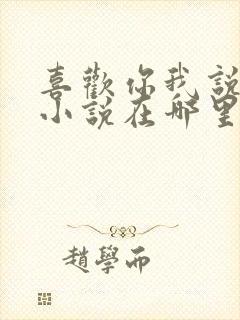 喜歡你我說
小說在哪里
趙學而